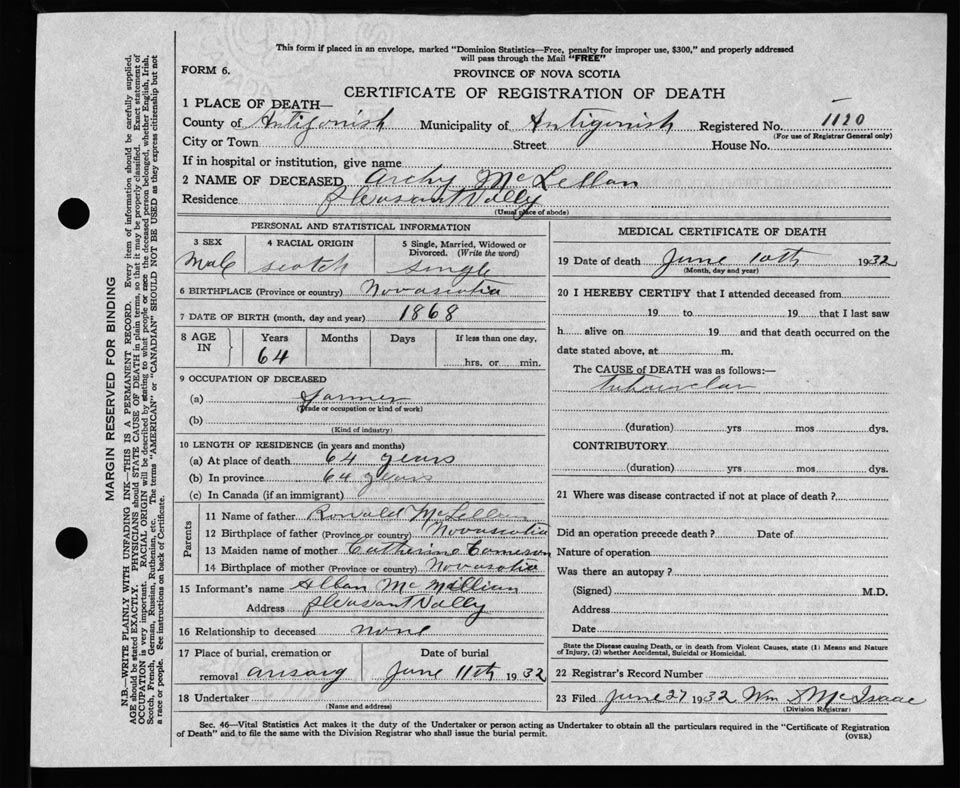 This form if placed in an envelope, marked "Dominion Statistics—Free, penalty for improper use, $300," and properly addressed
will pass through the Mail "FREE"
FORM 6.
PROVINCE OF NOVA SCOTIA
CERTIFICATE OF REGISTRATION OF DEATH
1 PLACE OF DEATH—
County of Antigonish Municipality of Antigonish Registered No. 1120
(For use of Registrar General only)
City or Town Street House No.
If in hospital or institution, give name
2 NAME OF DECEASED Archy McLellan
Residence Pleasant Vally
(Usual place of abode)
PERSONAL AND STATISTICAL INFORMATION
3 SEX 4 RACIAL ORIGIN 5 Single, Married, Widowed or
Divorced. (Write the word)
Male scotch single
6 BIRTHPLACE (Province or country) Novascotia
7 DATE OF BIRTH (month, day and year) 1868
8 AGE IN Years Months Days If less than one day,
64 hrs. or min.
9 OCCUPATION OF DECEASED
(a) Farmer
(Trade or occupation or kind of work)
(b)
(Kind of industry)
10 LENGTH OF RESIDENCE (in years and months)
(a) At place of death 64 years
(b) In province 64 years
(c) In Canada (if an immigrant)
Parents
11 Name of father Ronald McLellan
12 Birthplace of father (Province or country) Novascotia
13 Maiden name of mother Catherine Cameron
14 Birthplace of mother (Province or country) Novasotia
15 Informant's name Allan McMillian
Address Pleasant Vally
16 Relationship to deceased none
17 Place of burial, cremation or Date of burial
removal arisaig June 11th 1932
18 Undertaker
(Name and address)
MEDICAL CERTIFICATE OF DEATH
19 Date of death June 10th 1932
(Month, day and year)
20 I HEREBY CERTIFY that I attended deceased from
19 to 19 that I last saw
h alive on 19 and that death occurred on the
date stated above, at m.
The CAUSE of DEATH was as follows:—
(duration) yrs mos dys.
CONTRIBUTORY
(duration) yrs mos dys.
21 Where was disease contracted if not at place of death?
Did an operation precede death? Date of
Nature of operation
Was there an autopsy?
(Signed) M.D.
Address
Date
State the Disease causing Death, or in death from Violent Causes, state (1) Means and Nature
of Injury, (2) whether Accidental, Suicidal or Homicidal.
22 Registrar's Record Number
23 Filed June 27 1932 Wm S McIsaac
(Division Registrar)
Sec. 46—Vital Statistics Act makes it the duty of the Undertaker or person acting as Undertaker to obtain all the particulars required in the "Certificate of Registration
of Death" and to file the same with the Division Registrar who shall issue the burial permit.
(OVER)
MARGIN RESERVED FOR BINDING
N.B.—WRITE PLAINLY WITH UNFADING INK—THIS IS A PERMANENT RECORD. Every item of information should be carefully supplied.
AGE should be stated EXACTLY. PHYSICIANS should STATE CAUSE OF DEATH in plain terms, so that it may be properly classified. Exact statement of
OCCUPATION is very important. RACIAL ORIGIN will be described by stating to what people or race the deceased person belonged, whether English, Irish,
Scotch, French, German, Russian, Ruthenian, etc. The terms "AMERICAN" or "CANADIAN" SHOULD NOT BE USED as they express citizenship but not
a race or people. See instructions on back of Certificate.